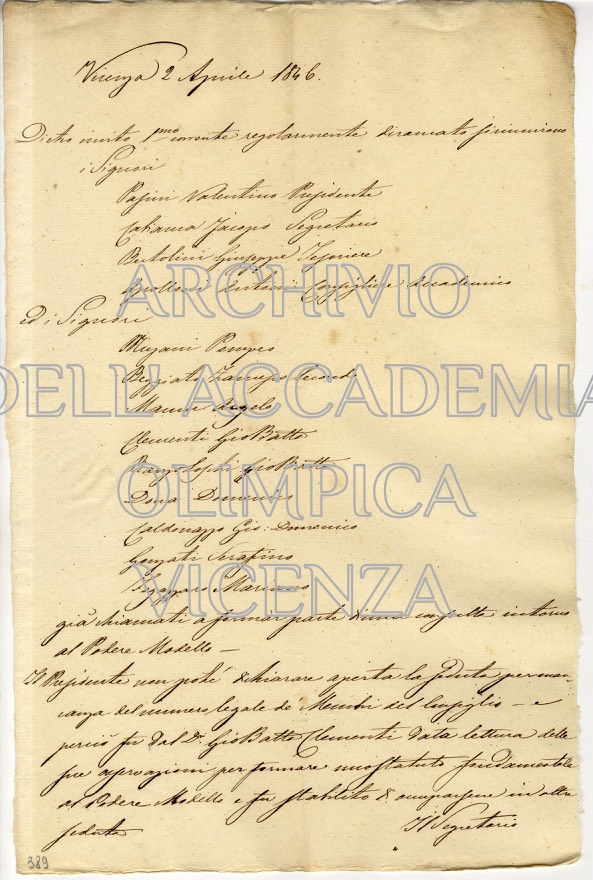 Vicenza 2 Aprile 1846.
Dietro invito pmo corrente regolarmente diramato si riunirono
i Signori
Pasini Valentino Presidente
Cabianca Jacopo Segretario
Bertolini Giuseppe Tesoriere
Consigliere Accademico
ed i Signori
Muzani Pompeo
Beggiato Francesco Secondo
Manna Angelo
Clementi GioBatta
GioBatta
Donà Domenico
Caldonazzo Gio: Domenico
Gonzati Serafino
Marino
già chiamati a formar parte d'una consulta intorno
al Podere Modello —
Il Presidente non potè dichiarare aperta la seduta per man
canza del numero legale de Membri del Consiglio — e
perciò fu dal Dr. GioBatta Clementi data lettura delle
sue per formare uno statuto fondamentale
al Podere Modello e fu stabilito d'occuparsene in altra
seduta
Il Segretario
389
ARCHIVIO
DELL'ACCADEMIA
OLIMPICA
VICENZA